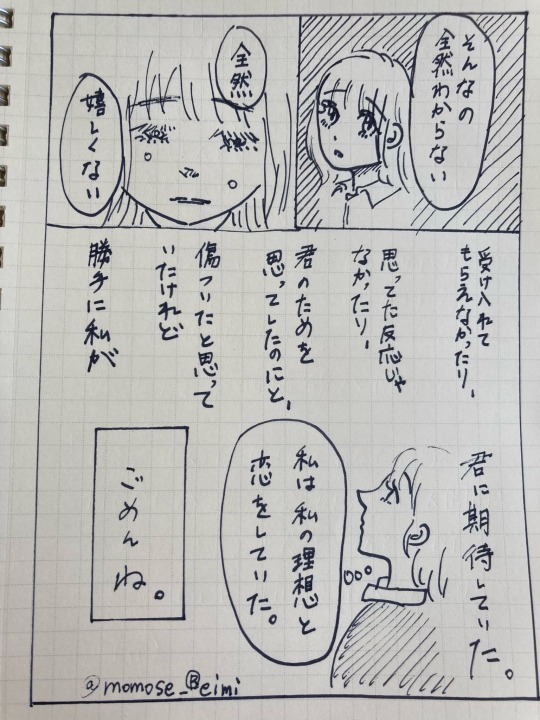 そんなの
全然わからない
全然
嬉しくない
受け入れて
もらえなかったり、
思ってた反応じゃ
なかったり、
君のためを
思ってしたのにと、
傷ついたと思って
いたけれど
勝手に私が
君に期待していた。
私は私の理想と
恋をしていた。
ごめんね。
@momose_Beimi